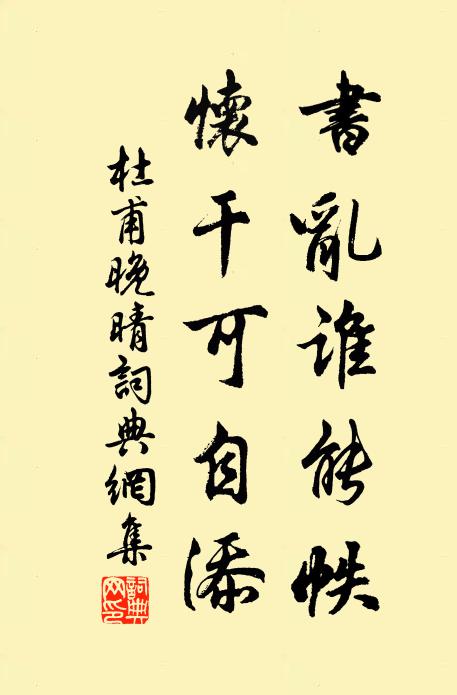 書亂誰能帙
懷干可自添
杜甫晚晴詞典網集
詞典网印